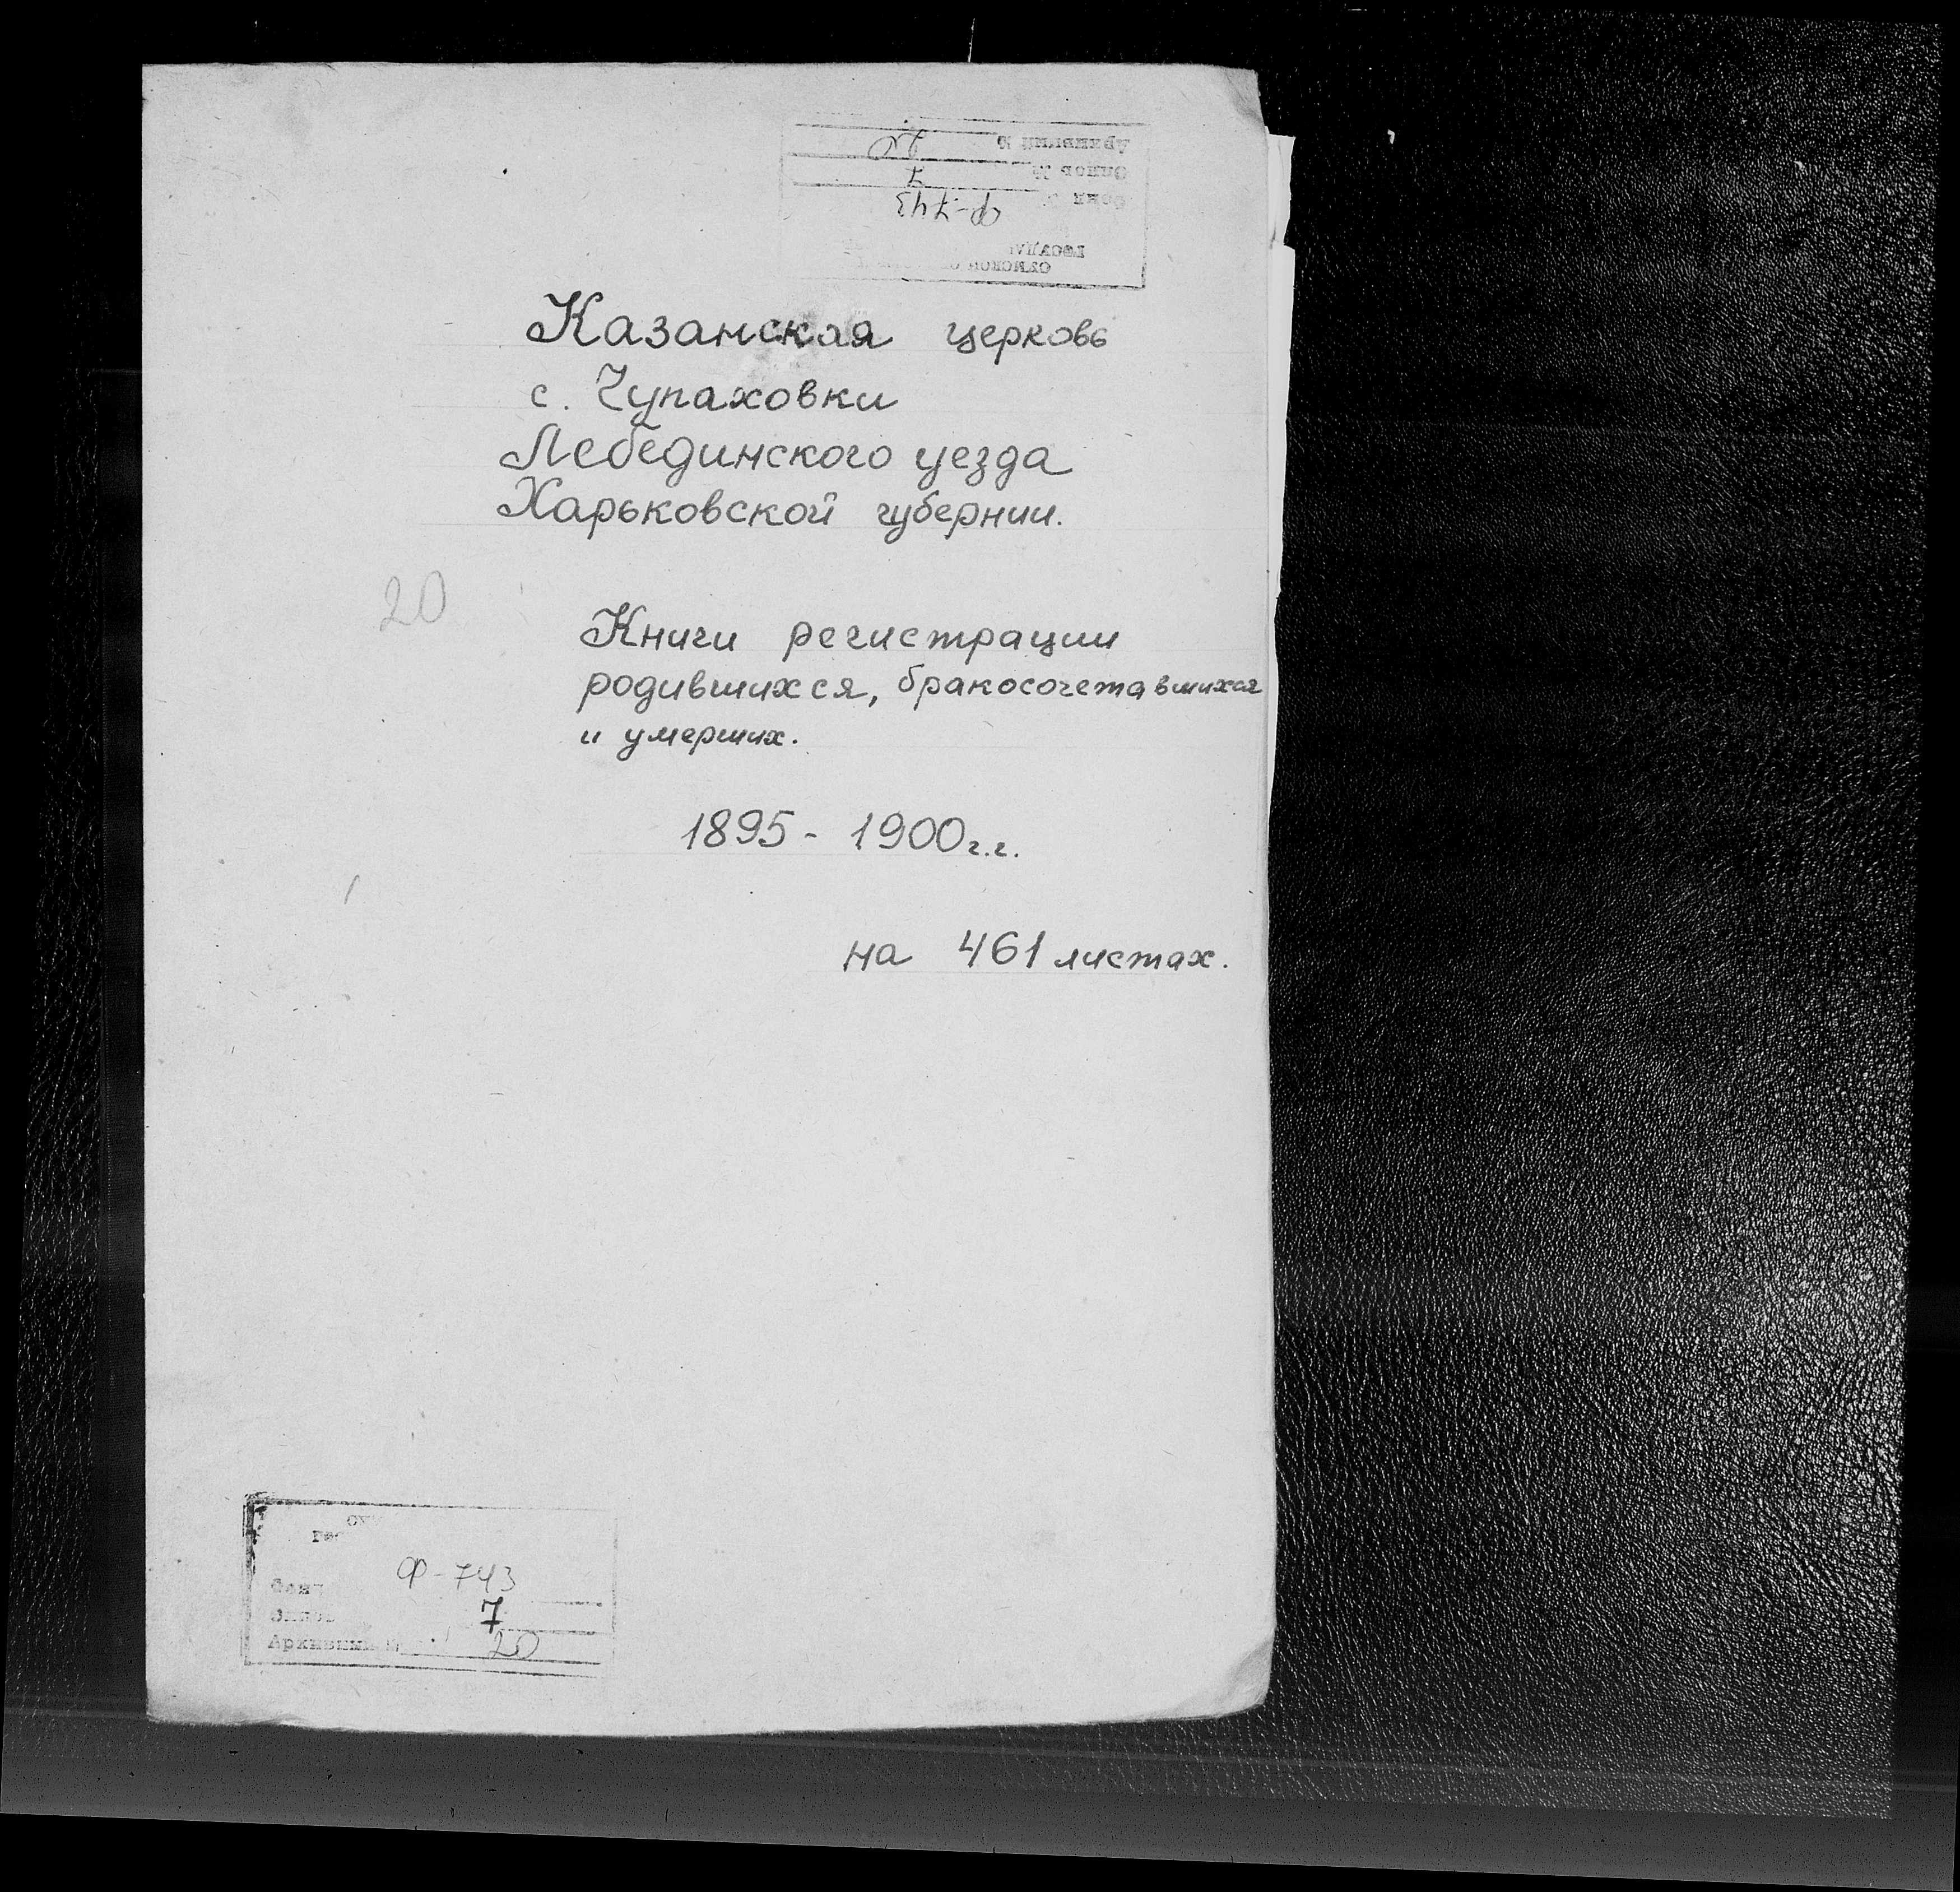 Казанская церковь
с. Чупаховки
Лебединского уезда
Харьковской губернии.
20
Книги регистрации
родившихся, бракосочетавшихся
и умерших.
1895 - 1900 г.г.
на 461 листах.
Ф-743
7
Архивный
20